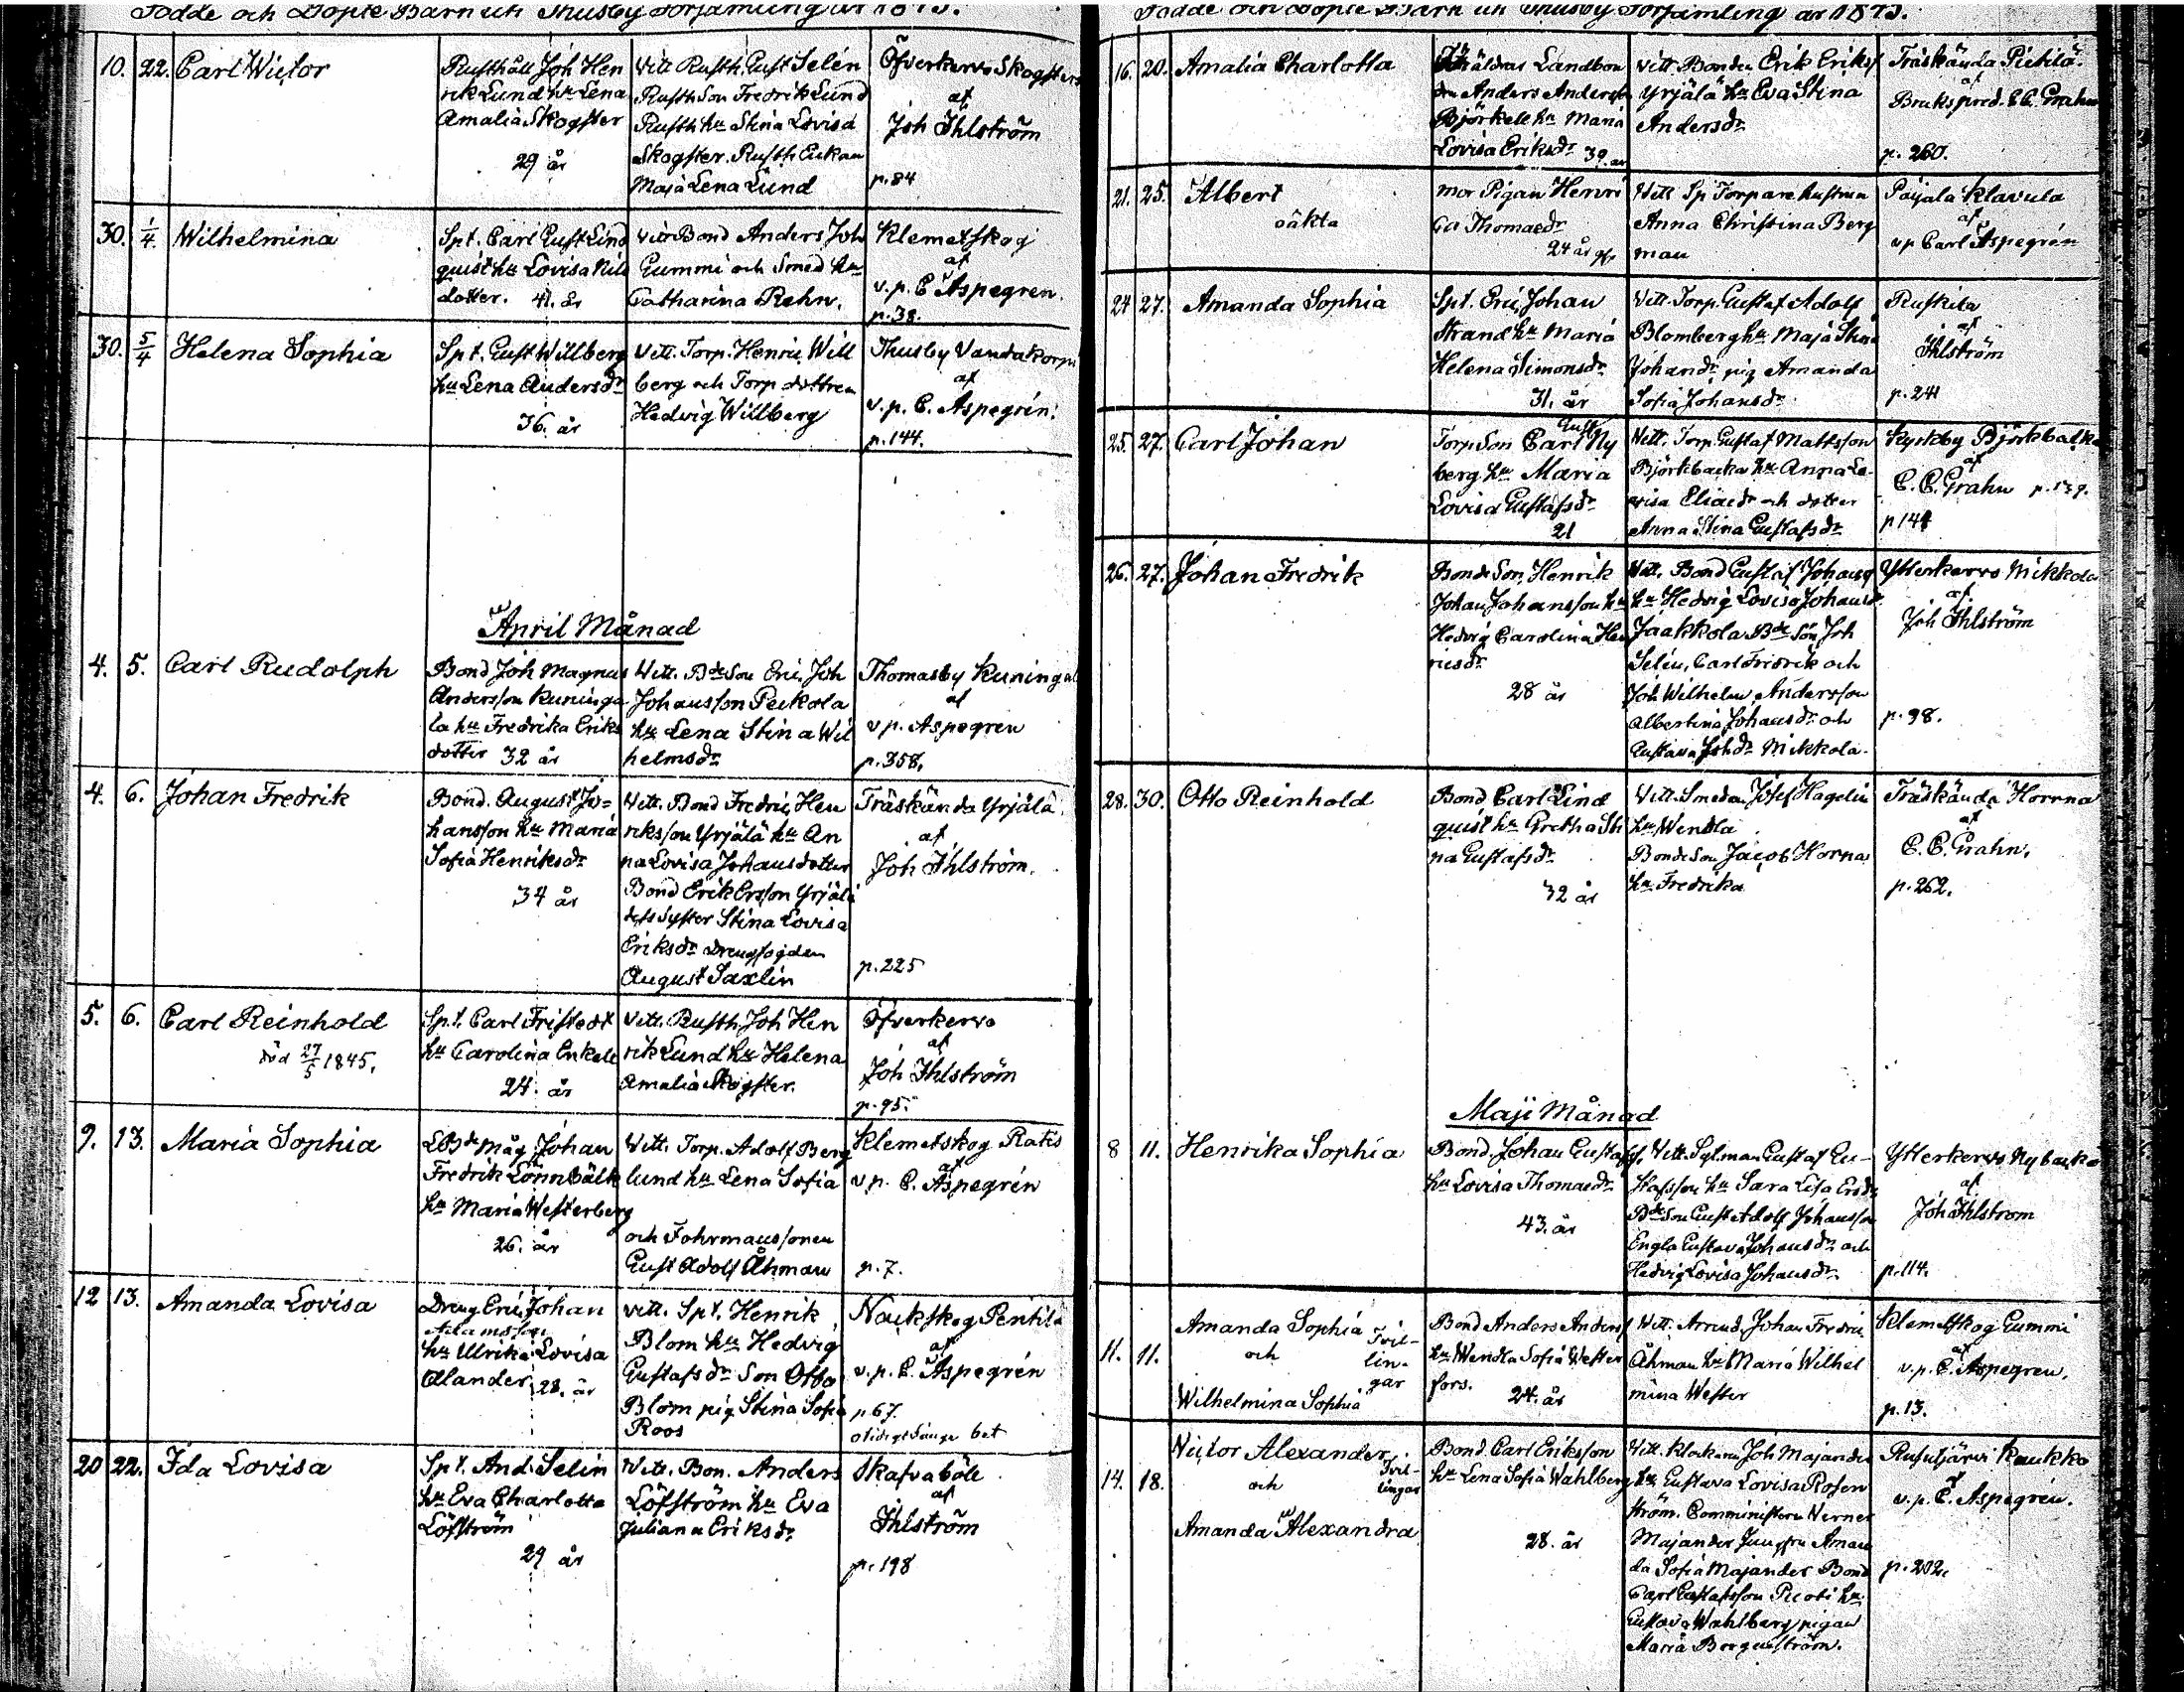 Födde och Döpte Barn uti Thusby Församling år 1845.
10. 22. Carl Wictor
Rusthåll. Joh Hen
rik Lund hu Lena
Amalia Skogster
29 år
Vitt Rusth. Gust Selén
Rusth Son Fredrik Lund
Rusth hu Stina Lovisa
Skogster. Rusth Enkan
Maja Lena Lund
Öfverkervo Skogsters
af
Joh Ihlström
p. 84
30. 1/4. Wilhelmina
Spt. Carl Gust Lind
quist hu Lovisa Nils
dotter. 41. år
Vitt Bond Anders Joh
Gummi och Smed hu
Catharina Rehn.
Klemetskog
af
v.p. C Aspegren.
p. 38.
30. 5/4 Helena Sophia
Spt. Gust Willberg
hu Lena Andersdr
36. år
Vitt. Torp. Henric Will
berg och Torp dottren
Hedvig Willberg
Thusby Vandakorpi
af
v.p. C. Aspegrén.
p. 144.
April Månad
4. 5. Carl Rudolph
Bond Joh Magnus
Andersson Kuninga
la hu Fredrika Eriks
dotter 32 år
Vitt. Bde Son Eric Joh
Johansson Peckola
hu Lena Stina Wil
helmsdr
Thomasby Kuningala
af
v p. Aspegren
p. 358.
4. 6. Johan Fredrik
Bond. August Jo=
hansson hu Maria
Sofia Henriksdr
34 år
Vitt. Bond Fredric Hen
riksson Yrjälä hu An
na Lovisa Johansdotter
Bond Erik Ersson Yrjälä
dess Syster Stina Lovisa
Eriksdr Drengfogden
August Saxlin
Träskända Yrjälä.
af
Joh Ihlström.
p. 225
5. 6. Carl Reinhold
död 27/5 1845.
Spt. Carl Fristedt
hu Carolina Enkele
24. år
Vitt. Rusth Joh Hen
rik Lund hu Helena
Amalia Skogster.
Öfverkervo
af
Joh Ihlström
p. 95.
9. 13. Maria Sophia
LBde Måg Johan
Fredrik Lönnbäck
hu Maria Westerberg
26. år
Vitt. Torp. Adolf Berg
lund hu Lena Sofia
och Fohrmanssonen
Gust Adolf Åhman
Klemetskog Ratis
af
v p. C. Aspegrén
p. 7.
12 13. Amanda Lovisa
Dreng Eric Johan
Adamsson
hu Ulrika Lovisa
Olander 28. år
vitt. Spt. Henrik
Blom hu Hedvig
Gustafsdr Son Otto
Blom pig Stina Sofia
Roos
Naukskog Pentilä
af
v. p. C. Aspegrén
p 67.
20 22. Ida Lovisa
Spt. And. Selin
hu Eva Charlotta
Löfström
29 år
Vitt. Bon. Anders
Löfström hu Eva
Juliana Eriksdr
Skafvaböle
af
Ihlström
p. 198
Födde och Döpte Barn uti Thusby Församling år 1845.
16. 20. Amalia Charlotta
Föräldrar Landbon
Anders Andersson
Björkell hu Maria
Lovisa Eriksdr 39. år
Vitt. Bonden Erik Eriks
Yrjälä hu Eva Stina
Andersdr
Träskända Pietilä.
af
Brukspred. C. C. Grahn
p. 260.
21. 25. Albert
oäkta
mor Pigan Henri
ca Thomaedr
24 år gl.
Vitt Sp Torpare hustrun
Anna Christina Berg
man
Paijala Klavula
af
v p Carl Aspegrén
24 27. Amanda Sophia
Spt. Eric Johan
Strand hu Maria
Helena Simonsdr
31. år
Vitt. Torp. Gustaf Adolf
Blomberg hu Maja Stina
Johandr. pig Amanda
Sofia Johansdr.
Ruskila
af
Ihlström
p. 241
25. 27. Carl Johan
Gust
Torp Son Carl Ny
berg hu Maria
Lovisa Gustafsdr
21
Vitt. Torp. Gustaf Mattsson
Björkbacka hu Anna Lo-
visa Eliaedr och dotter
Anna Stina Gustafsdr
Kyrkby Björkbacka
af
C. C. Grahn p. 139.
p 144
26. 27. Johan Fredrik
Bonde Son Henrik
Johan Johansson hu
Hedvig Carolina Hen
ricsdr
28 år
Vitt. Bond Gustaf Johans
hu Hedvig Lovisa Johansd
Jaakkola Bde Son Joh
Selin, Carl Fridrik och
Joh Wilhelm Andersson
Albertina Johansdr och
Gustava Johdr Mikkola.
Ytterkervo Mikkola
af
Joh Ihlström
p. 98.
28. 30. Otto Reinhold
Bond Carl Lind
quist hu Gretha Sti
na Gustafsdr
32 år
Vitt. Smeden Josef Hagelin
hu Wendla
Bonde Son Jacob Horna
hu Fredrika
Träskända Horrna
af
C. C. Grahn.
p. 262.
Maji Månad
8 11. Henrika Sophia
Bond. Johan Gustafss.
hu Lovisa Thomaedr
43. år
Vitt. Sytman Gustaf Gu-
stafsson hu Sara Lisa Ersdr
Bde Son Gust Adolf Johansson
Engla Gustava Johansdr och
Hedvig Lovisa Johansdr
Ytterkervo Nybacka
af
Joh Ihlström
p. 114.
11. 11. Amanda Sophia
och
Wilhelmina Sophia
Tvil-
lin-
gar
Bond Anders Anders
hu Wendla Sofia Wester
fors.
24. år
Vitt. Arrend. Johan Fredric
Åhman hu Maria Wilhel
mina Wester
Klemetskog Gummi
af
v. p. C. Aspegren.
p. 13.
14. 18. Victor Alexander
och
Amanda Alexandra
Tvil-
lingar
Bond. Carl Eriksson
hu Lena Sofia Wahlberg
28. år
Vitt. Klockaren Joh Majander
hu Gustava Lovisa Rosen
ström. Comministern Verner
Majander Jungfru Aman
da Sofia Majander Bond
Carl Gustafsson Picoti hu
Gustava Wahlberg pigan
Maria Bergenström.
Rusutjärvi Kaukko
af
v. p. C. Aspegrén.
p. 202.